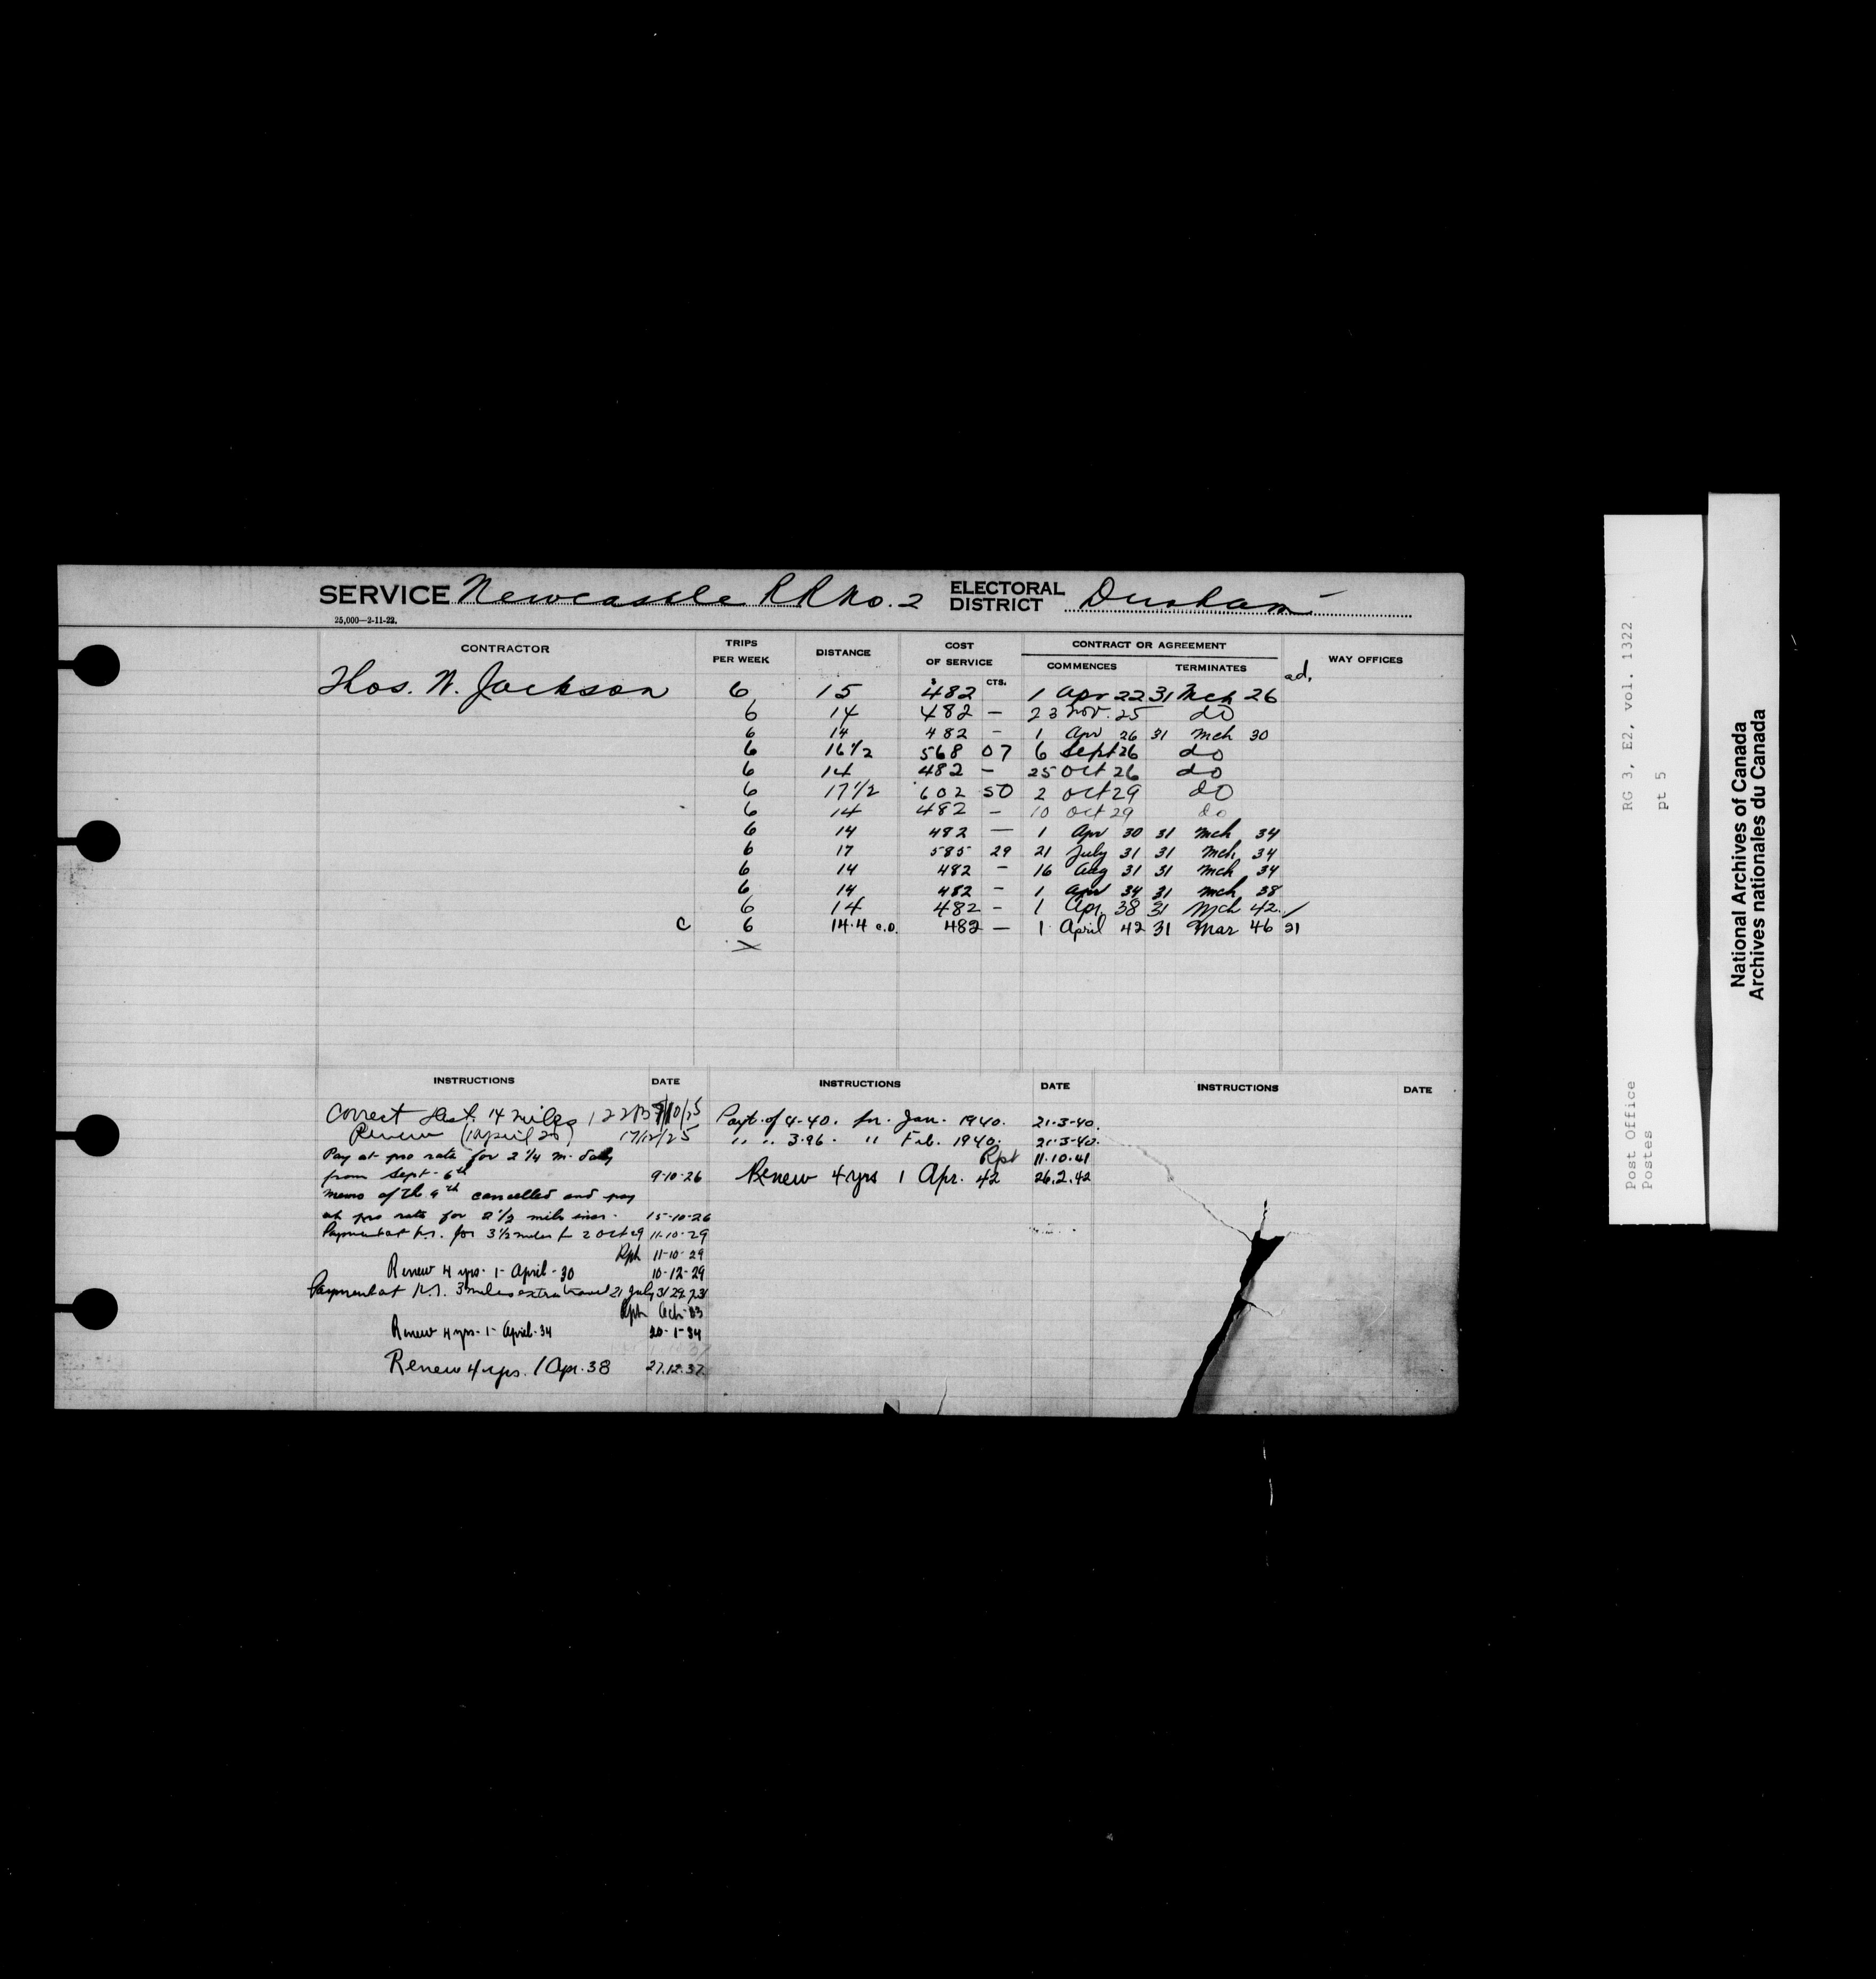 SERVICE Newcastle RR No. 2 ELECTORAL DISTRICT Durham
25,000—2-11-22.
CONTRACTOR TRIPS PER WEEK DISTANCE COST OF SERVICE CONTRACT OR AGREEMENT WAY OFFICES
COMMENCES TERMINATES
$ CTS. ad.
Thos. W. Jackson 6 15 482 1 Apr 22 31 Mch 26
6 14 482 — 23 Nov. 25 do
6 14 482 — 1 Apr 26 31 Mch 30
6 16 1/2 568 07 6 Sept 26 do
6 14 482 — 25 Oct 26 do
6 17 1/2 602 50 2 Oct 29 do
6 14 482 — 10 Oct 29 do
6 14 482 — 1 Apr 30 31 Mch 34
6 17 585 29 21 July 31 31 Mch 34
6 14 482 — 16 Aug 31 31 Mch 34
6 14 482 — 1 Apr 34 31 Mch 38
6 14 482 — 1 Apr. 38 31 Mch 42
C 6 14.4 c.o. 482 — 1 April 42 31 Mar 46 21
INSTRUCTIONS DATE INSTRUCTIONS DATE INSTRUCTIONS DATE
Correct dist. 14 miles
Renew (1 April 26) 17/12/25
Pay at pro rata for 2 1/4 m. daily
from Sept. 6th 9-10-26
Memo of the 9th cancelled and pay
at pro rata for 2 1/2 miles incr. 15-10-26
Payment at p.r. for 3 1/2 miles fr 2 Oct 29 11-10-29
Rph 11-10-29
Renew 4 yrs. 1- April-30 10-12-29
Payment at p.r. 3 miles extra travel 21 July 31 29.7.31
Rph
Renew 4 yrs. 1- April-34 20-1-34
Renew 4 yrs. 1 Apr. 38 27.12.37
Payt. of 4-40. for. Jan. 1940. 21-3-40.
" " 3.96. " Feb. 1940. 21-3-40.
Rpt 11.10.41
Renew 4 yrs 1 Apr. 42 26.2.42
RG 3, E2, vol. 1322
pt 5
Post Office
Postes
National Archives of Canada
Archives nationales du Canada